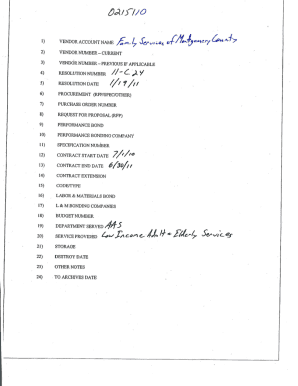 0215110
1) VENDOR ACCOUNT NAME Family Services of Montgomery County
2) VENDOR NUMBER - CURRENT
3) VENDOR NUMBER - PREVIOUS IF APPLICABLE
4) RESOLUTION NUMBER 11-C 24
5) RESOLUTION DATE 1/19/11
6) PROCUREMENT (RFP/SPEC/OTHER)
7) PURCHASE ORDER NUMBER
8) REQUEST FOR PROPOSAL (RFP)
9) PERFORMANCE BOND
10) PERFORMANCE BONDING COMPANY
11) SPECIFICATION NUMBER
12) CONTRACT START DATE 7/1/10
13) CONTRACT END DATE 6/30/11
14) CONTRACT EXTENSION
15) CODE/TYPE
16) LABOR & MATERIALS BOND
17) L & M BONDING COMPANIES
18) BUDGET NUMBER
19) DEPARTMENT SERVED AAS
20) SERVICE PROVIDED Low Income Adult & Elderly Services
21) STORAGE
22) DESTROY DATE
23) OTHER NOTES
24) TO ARCHIVES DATE